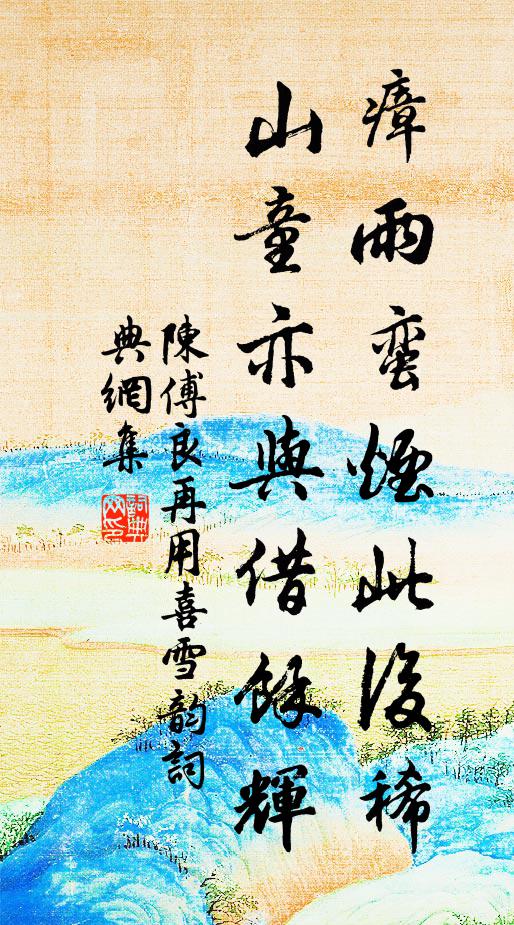 瘴雨蛮煙此後稀
山童亦與借餘輝
陳傅良再用喜雪韵詞
典網集
詞典